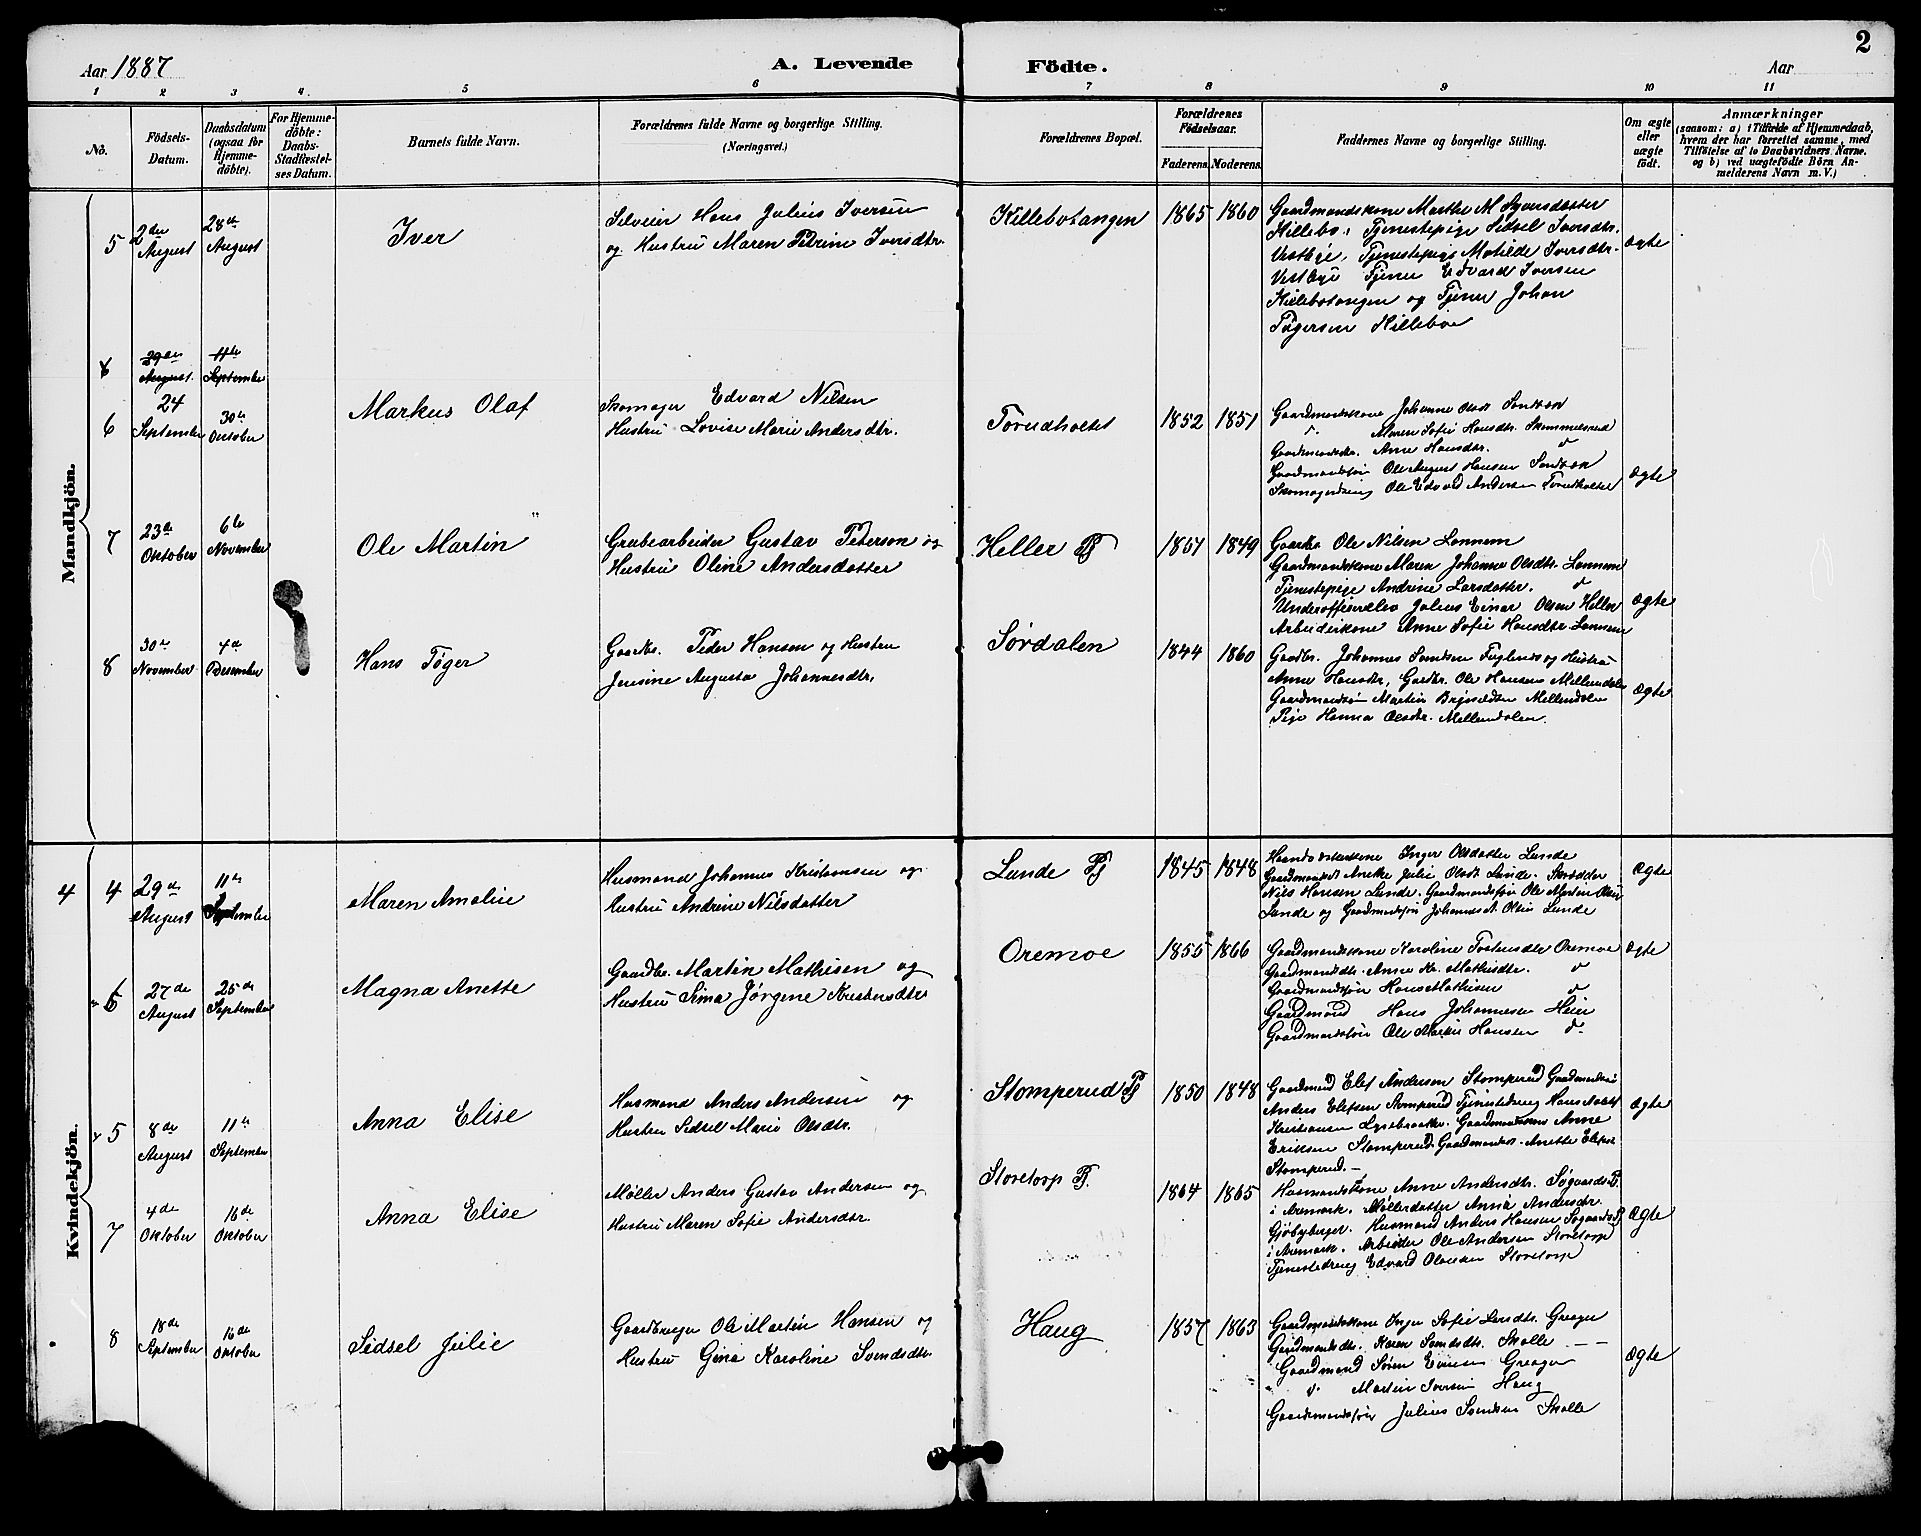 2
Aar 1887
A. Levende Födte.
Aar
1 2 3 4 5 6 7 8 9 10 11
No.
Födsels-
Datum.
Daabsdatum
(ogsaa for
Hjemme-
döbte).
For Hjemme-
döbte:
Daabs-
Stadfæstel-
ses Datum.
Barnets fulde Navn.
Forældrenes fulde Navne og borgerlige Stilling.
(Næringsvei.)
Forældrenes Bopæl.
Forældrenes
Födselsaar.
Faderens. Moderens.
Faddernes Navne og borgerlige Stilling.
Om ægte
eller
uægte
födt.
Anmærkninger
(saasom: a) i Tilfælde af Hjemmedaab,
hvem der har forrettet samme, med
Tilföielse af to Daabsvidners Navne.
og b) ved uægtefödte Börn An-
melderens Navn m. V.)
Mandkjön.
5
2den
August
28de
August
Iver
Selveier Hans Julius Iversen
og Hustru Maren Petrine Iversdtr.
Killebotangen
1865 1860
Gaardmandskone Marthe M Syversdatter
Killebo, Tjenestepige Sidsel Iversdtr.
Vestbye, Tjenestepige Matilde Iversdtr.
Vestbye Tjener Edvard Iversen
Killebotangen og Tjener Johan
Tøgersen Killeboe
ægte
29de
August.
11te
September
6
24
September
30te
October
Markus Olaf
Skomager Edvard Nilsen
Hustru Lovise Marie Andersdtr.
Torudholtet
1852 1851
Gaardmandskone Johanne Olsdt.
Maren Sofie Hansdtr.
Gaardmandsdtr. Anne Hansdtr.
Gaardmandssøn Ole August Hansen
Skomagerdreng Ole Edvard Andersen Torudholtet
ægte
7
23de
Oktober
6te
November
Ole Martin
Grubearbeider Gustav Peterson og
Hustru Oline Andersdatter
Heller Pl
1851 1849
Gaardbr. Ole Nilsen Lannem
Gaardmandskone Maren Johanne Olsdtr. Lannem
Tjenestepige Andrine Larsdatter.
Underofficerselev Julius Einar Olsen Heller
Arbeiderkone Anne Sofie Hansdtr Lannem
ægte
8
30te
November
4de
Desember
Hans Tøger
Gaardbr. Peder Hansen og Hustru
Jensine Augusta Johannesdtr.
Sørdalen
1844 1860
Gaardbr. Johannes Fuglenes og Hustru
Anne Hansdtr, Gaardbr. Ole Hansen Mellemdalen
Gaardmandssøn Martin Mellemdalen
Pige Hanna Olsdtr. Mellemdalen.
ægte
Kvindekjön.
4 4
29de
August
11te
September
Maren Amalie
Husmand Johannes Kristiansen og
Hustru Andrine Nilsdatter
Lunde Pl
1845 1848
Inger Olsdatter Lunde
Gaardmandsdt Anette Julie Olsdt. Lunde. Skrædder
Nils Hansen Lunde. Gaardmandssøn Ole Martin Olsen
Lunde og Gaardmandssøn Johannes A. Olsen Lunde
ægte
6
27de
August
25de
September
Magna Anette
Gaardbr. Martin Mathisen og
Hustru Sina Jørgene Kristensdtr
Oremoe
1855 1866
Gaardmandskone Karoline Torstensdtr Oremoe
Gaardmandsdtr. Anne Ka. Mathisdtr.
Gaardmandssøn Hans Mathisen
Gaardmand Hans Johannesen Heier
Gaardmandssøn Ole Markus Hansen
ægte
5
8de
August
11te
September
Anna Elise
Husmand Anders Andersen og
Hustru Sidsel Marie Olsdtr.
Stomperud Pl
1850 1848
Gaardmand Elef Andersen Stomperud Gaardmandssøn
Anders Elefsen Stomperud Tjenestedreng Hans Adolf
Kristiansen Lysebraaten. Gaardmandskone Anne
Eriksen Stomperud. Gaardmandsdt. Anette Elefsen
Stomperud.—
ægte
7
4de
Oktober
16de
Oktober
Anna Elise
Møller Anders Gustav Andersen og
Hustru Maren Sofie Andersdtr.
Storetorp Pl.
1864 1865
Husmandskone Anne Andersdtr. Søgaards Pl.
i Aremark. Møllerdatter Anna Andersdtr.
Gjøbyberget. Husmand Anders Hansen Søgaards Pl
i Aremark. Arbeider Ole Andersen Storetorp
Tjenestedreng Edvard Olausen Storetorp
ægte
8
18de
September
16de
Oktober
Sidsel Julie
Gaardbruger Ole Martin Hansen og
Hustru Gina Karoline Svendsdtr.
Haug
1857 1863
Gaardmandskone Inger Sofie Greager
Gaardmandsdtr. Karen Svendsdtr. Skolle
Gaardmand Søren Greager
Martin Iversen Haug
Gaardmandssøn Julius Svendsen Skolle
ægte